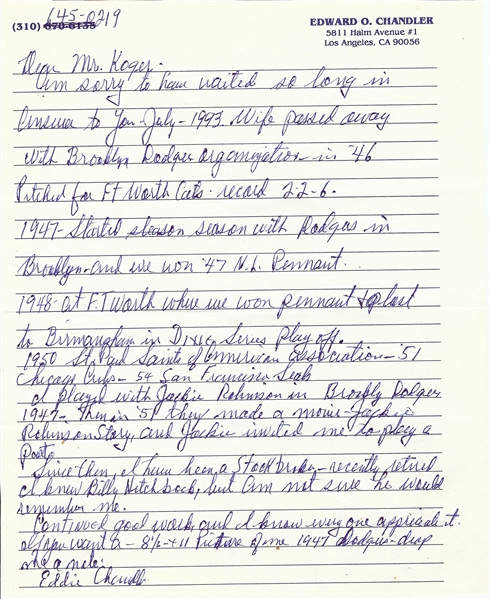 645-0219
(310) 670-6135
EDWARD O. CHANDLER
5811 Halm Avenue #1
Los Angeles, CA 90056
Dear Mr. Koger.
I'm sorry to have waited so long in
Answer to You - July - 1993. Wife passed away
with Brooklyn Dodger organization in '46
Pitched for Ft Worth Cats - record 22-6.
1947 - Started season season with Dodgers in
Brooklyn - and we won '47 N.L. Pennant.
1948 - at F.T Worth where we won pennant & lost
to Birmingham in Dixie Series Play off.
1950 St. Paul Saints of American Association - '51
Chicago Cubs - 54 San Francisco Seals
I played with Jackie Robinson in Brookly Dodger
1947 - Then in '51 they made a movie - Jackie
Robinson Story, and Jackie invited me to play a
Part.
Since then, I have been a Stock broker - recently retired
I knew Billy Hitchcock, but am not sure he would
remember me.
Continued good work, and I know every one appreciate it.
If you want a - 8 1/2 x 11 Picture of me 1947 Dodgers - drop
me a note.
Eddie Chandler